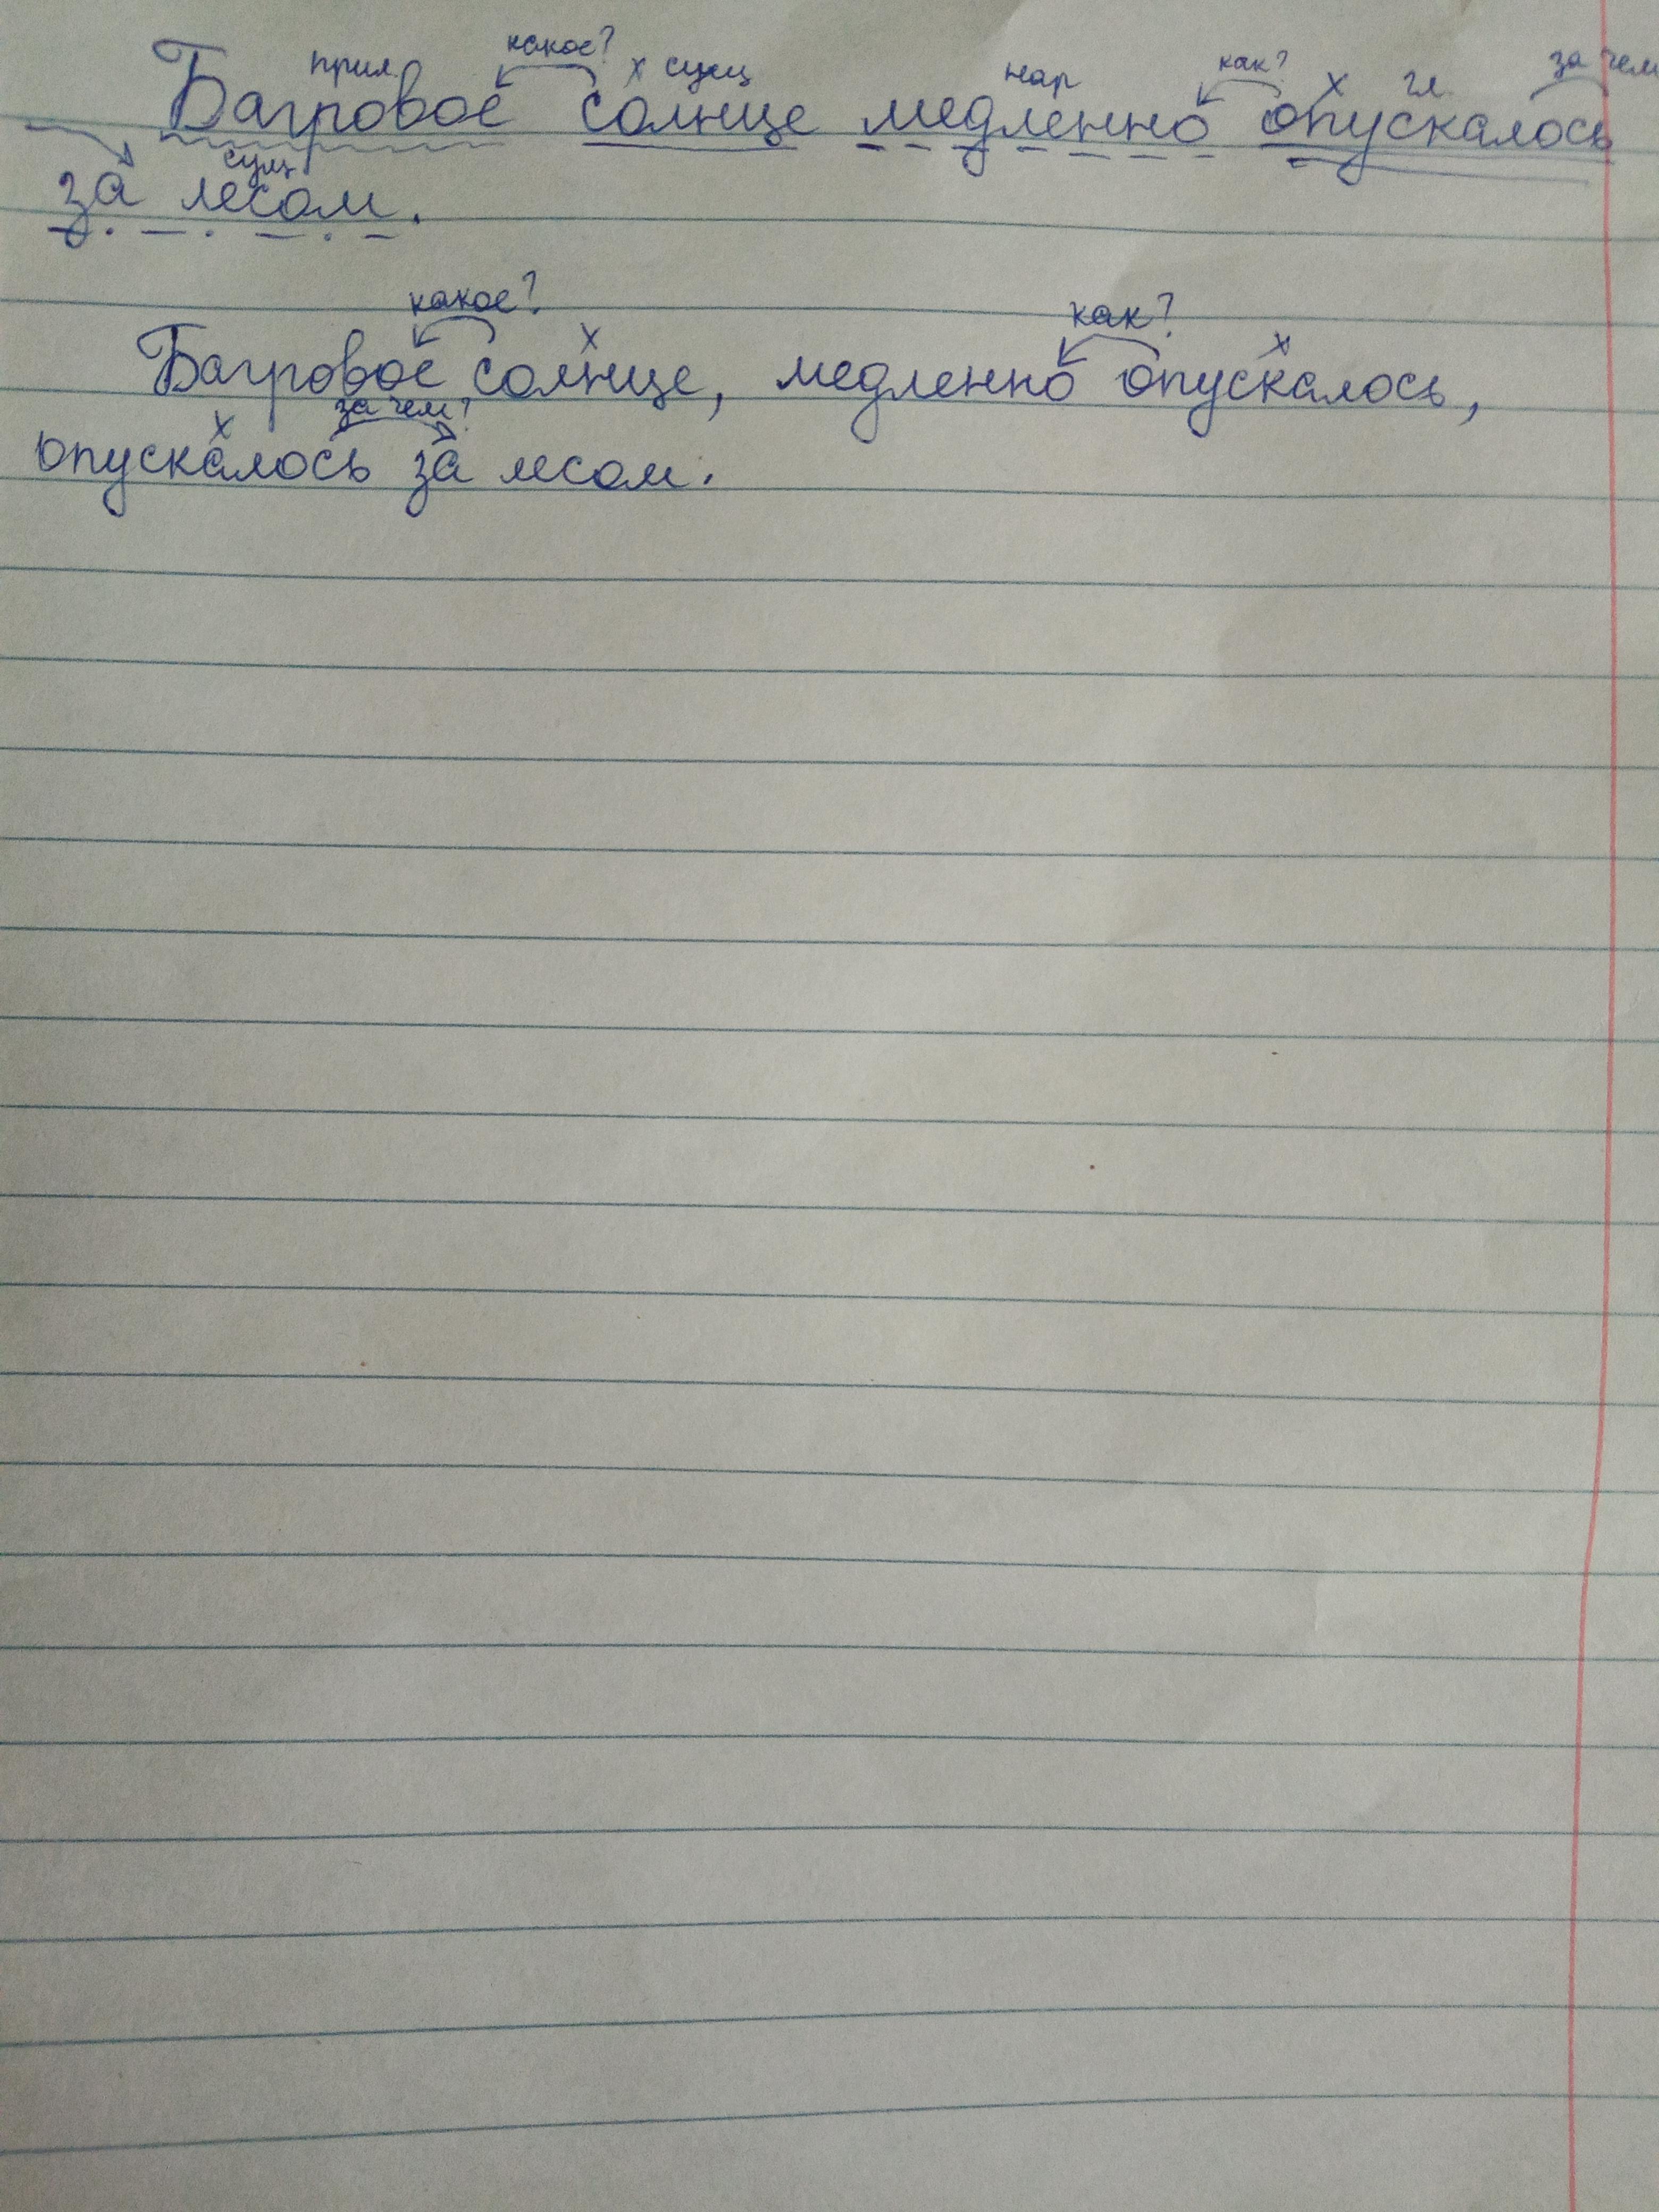 прил. какое? х сущ нар как? х гл. за чем
Багровое солнце медленно опускалось
сущ
за лесом.
какое? х как? х
Багровое солнце, медленно опускалось,
х за чем?
опускалось за лесом.